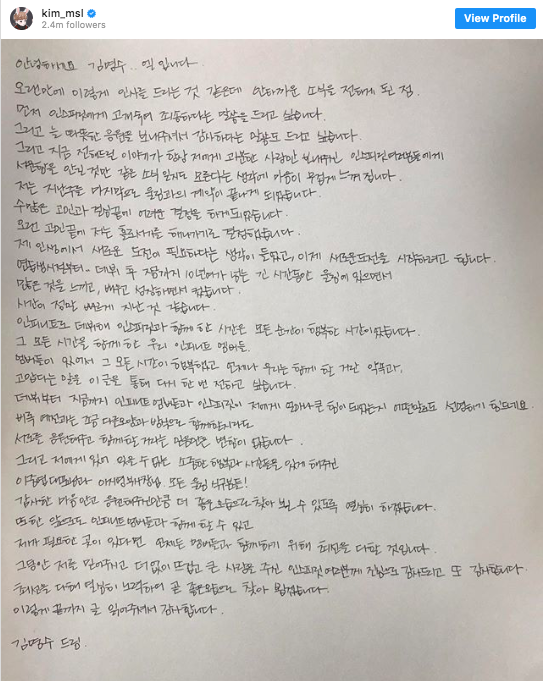 kim_msl
2.4m followers
View Profile
안녕하세요 김명수..엘 입니다.
오랜만에 이렇게 인사를 드리는 것 같은데 안타까운 소식을 전하게 된 점.
먼저 인스피릿에게 고개숙여 죄송하다는 말씀을 드리고 싶습니다.
그리고 늘 따뜻한 응원을 보내주셔서 감사하다는 말씀도 드리고 싶습니다.
그리고 지금 전해드릴 이야기가 항상 저에게 과분한 사랑만 보내주신 인스피릿여러분들에게
서운함을 안긴 것만 같은 소식 일지도 모른다는 생각에 마음이 무겁게 느껴집니다.
저는 지난주를 마지막으로 울림과의 계약이 끝나게 되었습니다.
수많은 고민과 결심끝에 어려운 결정을 하게되었습니다.
오랜 고민끝에 저는 홀로서기를 해나가기로 결정했습니다.
제 인생에서 새로운 도전이 필요하다는 생각이 들었고, 이제 새로운도전을 시작하려고 합니다.
연습생시절부터~ 데뷔 후 지금까지 10년여가 넘는 긴 시간동안 울림에 있으면서
많은 것을 느끼고, 배우고 성장하면서 컸습니다.
시간이 정말 빠르게 지난 것 같습니다.
인피니트로 데뷔해 인스피릿과 함께 한 시간은 모든 순간이 행복한 시간이었습니다.
그 모든 시간을 함께 한 우리 인피니트 멤버들.
멤버들이 있어서 그 모든시간이 행복했고 언제나 우리는 함께 할 거란 약속과,
고맙다는 말은 이 글을 통해 다시 한 번 전하고 싶습니다.
데뷔부터 지금까지 인피니트 멤버들과 인스피릿이 저에게 얼마나 큰 힘이 되었는지 어떤말로도 설명하기 힘드네요.
비록 예전과는 조금 다른모양과 방법으로 함께할지라도
서로를 응원해주고 함께할 거라는 믿음만은 변함이 없습니다.
그리고 저에게 있어 잊을 수 없는 소중한 행복과 사람들을 있게 해주신
이중엽대표님과 이사님 모든 울림 식구분들!
감사한 마음안고 응원해주신만큼 더 좋은모습으로 찾아 뵐 수 있도록 열심히 하겠습니다.
또한 앞으로도 인피니트멤버들과 함께 할 수 있고
제가 필요한 곳이 있다면 언제든 멤버들과 함께하기 위해 최선을 다할 것입니다.
그동안 저를 믿어주시고 더 없이 뜨겁고 큰 사랑을 주신 인스피릿 여러분께 진심으로 감사드리고 또 감사합니다.
최선을 다해 열심히 노력하여 곧 좋은모습으로 찾아 뵙겠습니다.
이렇게 끝까지 글 읽어주셔서 감사합니다.
김명수 드림.